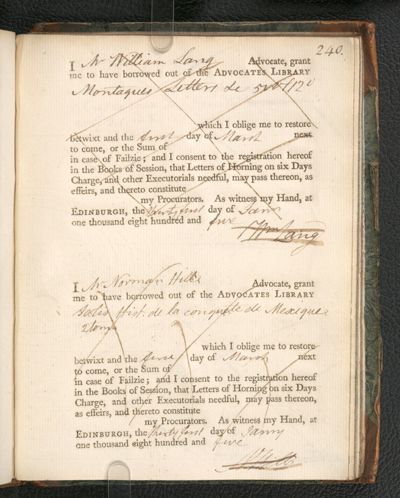 240.
I Mr William Lang Advocate, grant
me to have borrowed out of the ADVOCATES LIBRARY
Montagues Letters de
which I oblige me to restore
betwixt and the first day of March next
to come, or the Sum of
in case of Failzie; and I consent to the registration hereof
in the Books of Session, that Letters of Horning on six Days
Charge, and other Executorials needful, may pass thereon, as
effeirs, and thereto constitute
my Procurators. As witness my Hand, at
EDINBURGH, the thirty first day of Jany
one thousand eight hundred and five
Wm Lang
I Mr Norman Hill Advocate, grant
me to have borrowed out of the ADVOCATES LIBRARY
Solis Hist. de la conquete de Mexique
2 tom
which I oblige me to restore
betwixt and the first day of March next
to come, or the Sum of
in case of Failzie; and I consent to the registration hereof
in the Books of Session, that Letters of Horning on six Days
Charge, and other Executorials needful, may pass thereon,
as effeirs, and thereto constitute
my Procurators. As witness my Hand, at
EDINBURGH, the thirty first day of Janry
one thousand eight hundred and five
N Hill